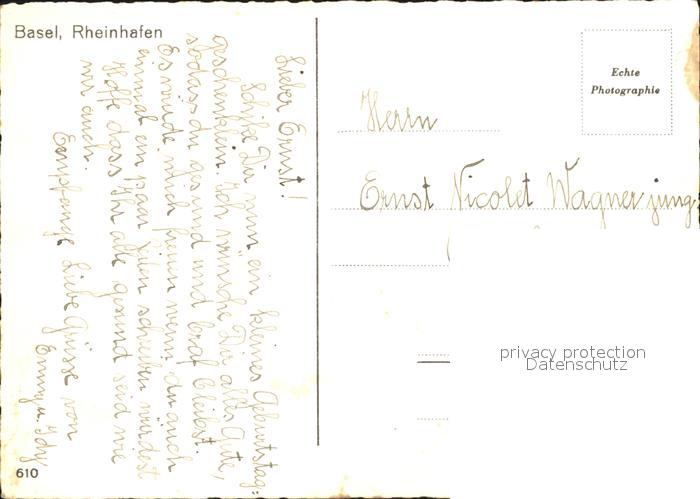 Basel, Rheinhafen
Lieber Ernst!
Schicke Dir zum ein kleines Geburtstag=
geschenklein. Ich wünsche Dir alles Gute,
sodass du gesund und brav bleibst.
Es würde mich freuen wenn du auch
einmal ein paar Zeilen schreiben würdest
Hoffe dass Ihr alle gesund seid wie
wir auch.
Empfange Liebe Grüsse von
Emmy u. Idy
610
Echte
Photographie
Herrn
Ernst Nicolet Wagner jung.
privacy protection
Datenschutz